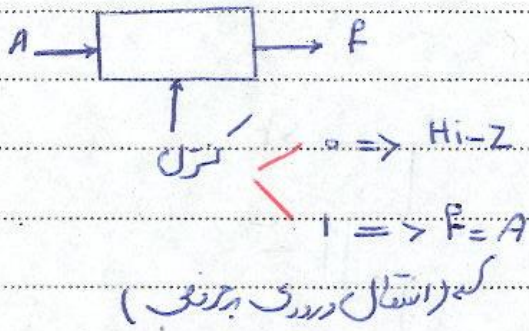 A F
کنترل
0 => Hi-Z
1 => F = A
(انتقال ورودی به خروجی)